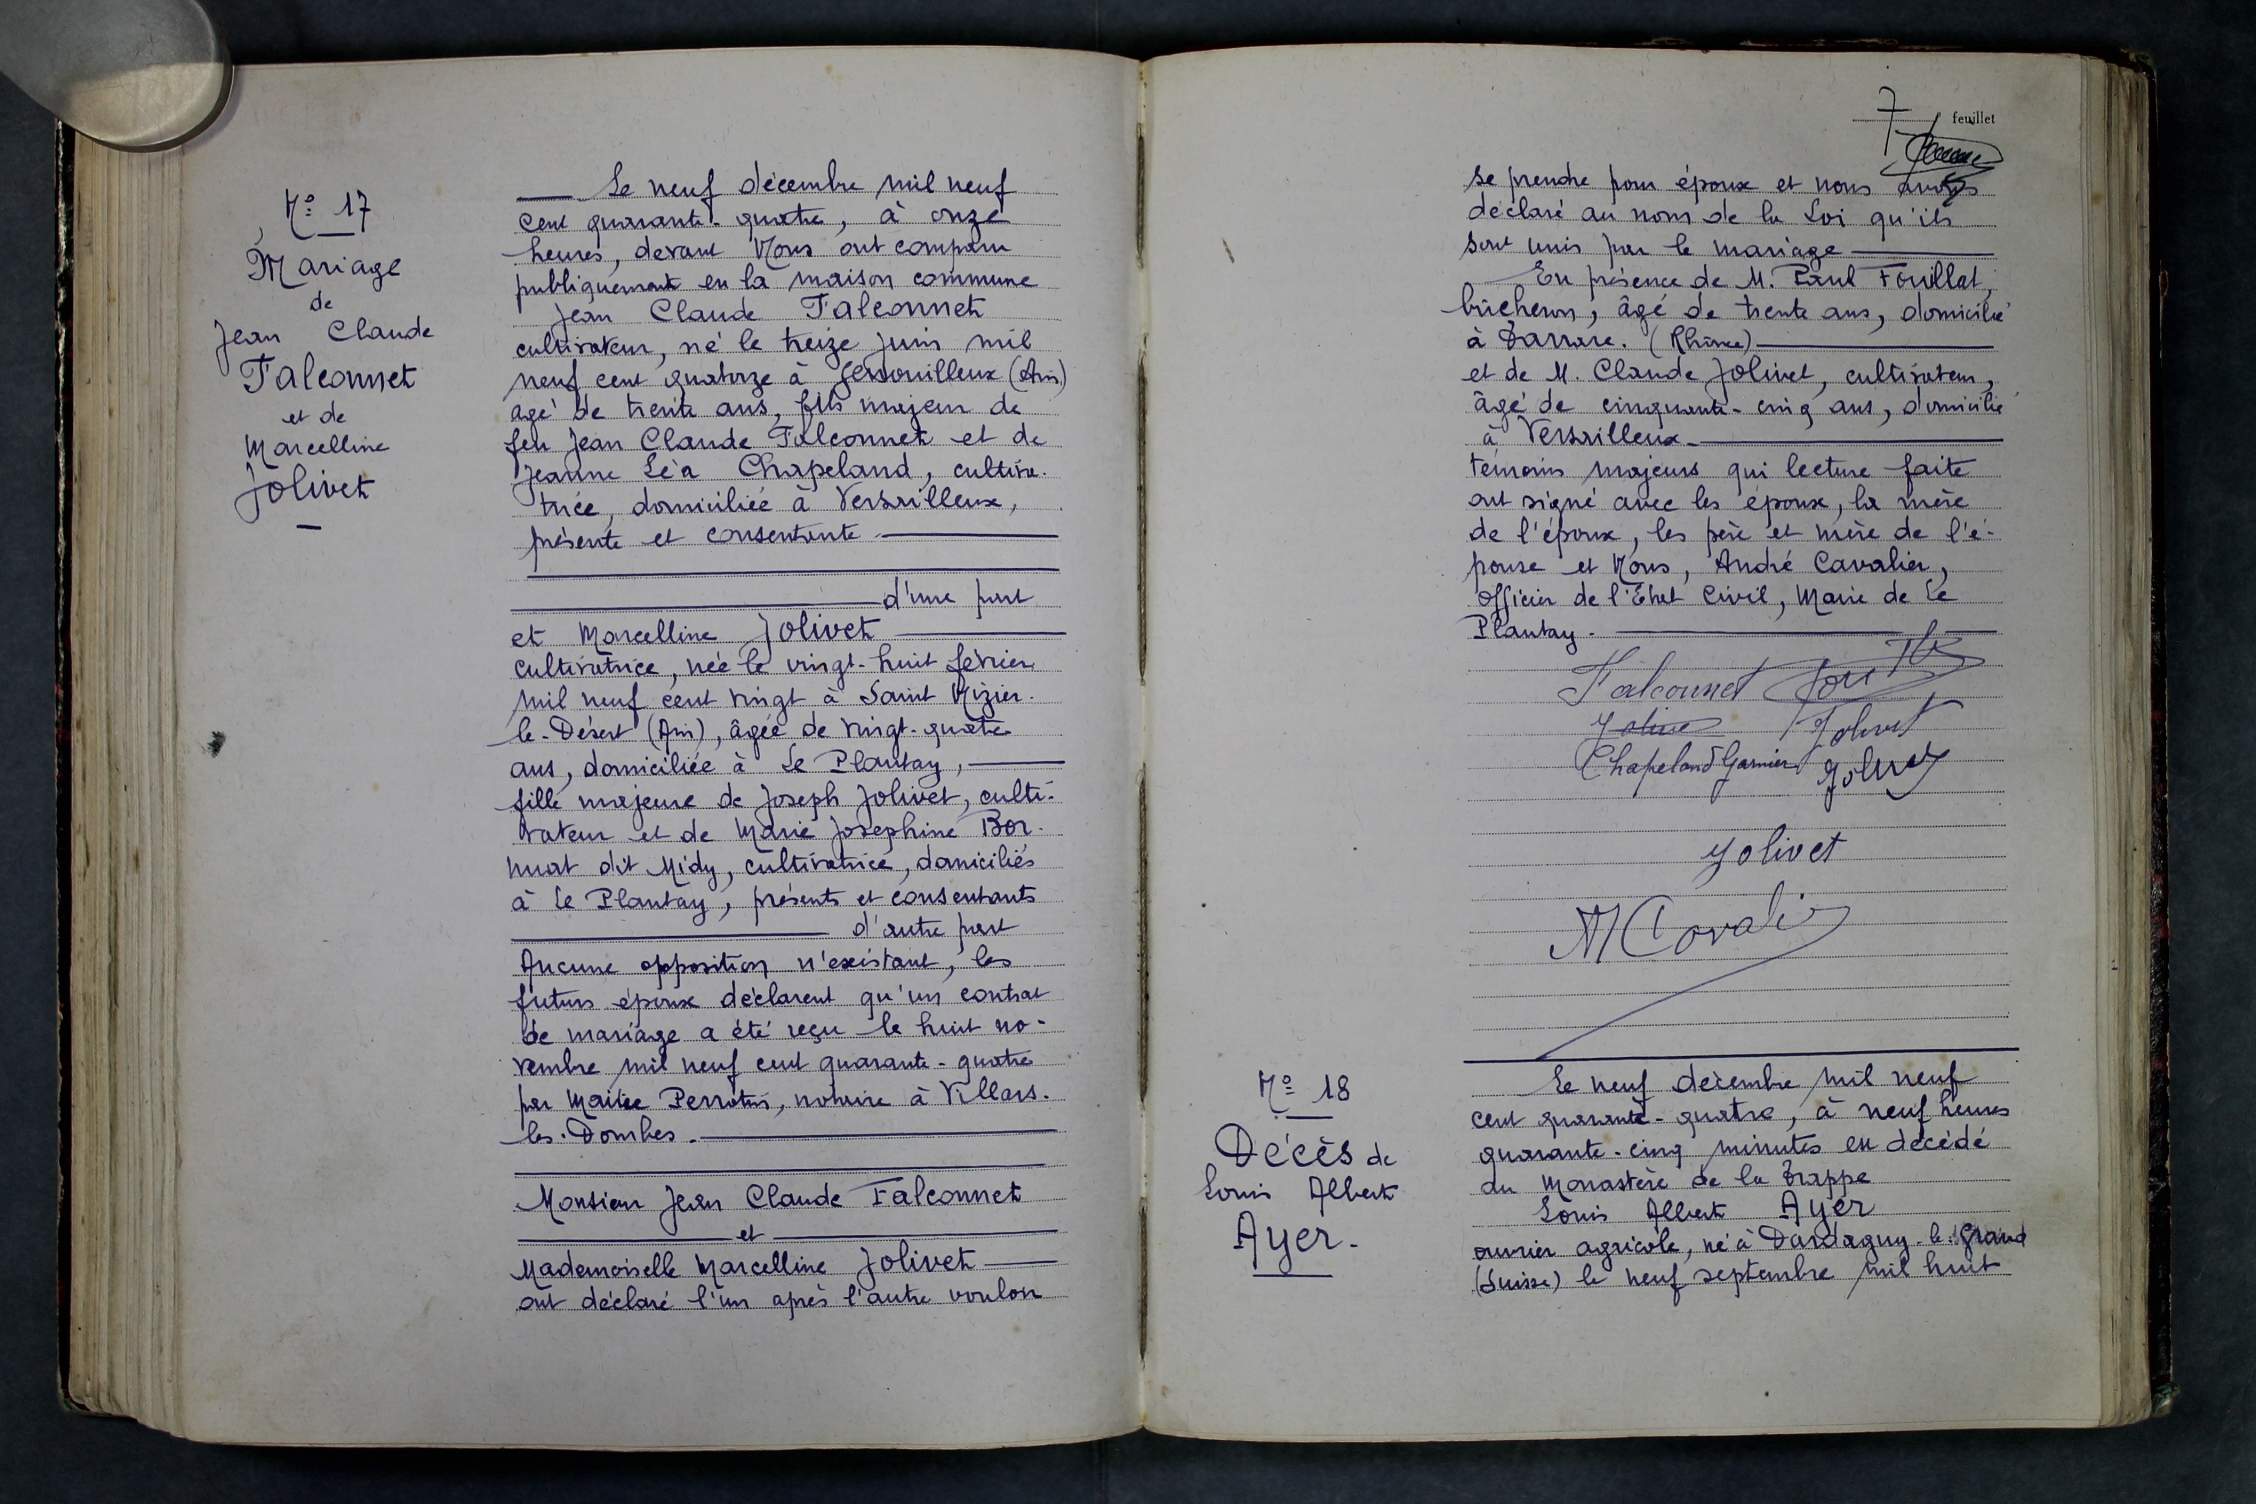 N° 17
Mariage
de
Jean Claude
Falconnet
et de
Marcelline
Jolivet
Le neuf décembre mil neuf
cent quarante-quatre, à onze
heures, devant Nous ont comparu
publiquement en la maison commune
Jean Claude Falconnet
cultivateur, né le treize juin mil
neuf cent quatorze à Genouilleux (Ain)
âgé de trente ans, fils majeur de
feu Jean Claude Falconnet et de
Jeanne Léa Chapeland, cultiva-
trice, domiciliée à Versailleux,
présente et consentante
d'une part
et Marcelline Jolivet
cultivatrice, née le vingt-huit février
mil neuf cent vingt à Saint Nizier-
le-Désert (Ain), âgée de vingt-quatre
ans, domiciliée à Le Plantay,
fille majeure de Joseph Jolivet, culti-
vateur et de Marie Josephine Bor-
nuat dit Midy, cultivatrice, domiciliés
à Le Plantay, présents et consentants
d'autre part
Aucune opposition n'existant, les
futurs époux déclarent qu'un contrat
de mariage a été reçu le huit no-
vembre mil neuf cent quarante-quatre
par Maître Perrotin, notaire à Villars-
les-Dombes.
Monsieur Jean Claude Falconnet
et
Mademoiselle Marcelline Jolivet
ont déclaré l'un après l'autre vouloir
7 feuillet
se prendre pour époux et nous avons
déclaré au nom de la Loi qu'ils
sont unis par le mariage
En présence de M. Paul Fouillat,
bûcheron, âgé de trente ans, domicilié
à Tarare. (Rhône)
et de M. Claude Jolivet, cultivateur,
âgé de cinquante-cinq ans, domicilié
à Versailleux
témoins majeurs qui lecture faite
ont signé avec les époux, la mère
de l'époux, les père et mère de l'é-
pouse et Nous, André Cavalier,
Officier de l'Etat Civil, Maire de Le
Plantay.
Falconnet
Jolivet Jolivet
Chapeland Garnier Jolivet
Jolivet
Cavalier
N° 18
Décès de
Louis Albert
Ayer.
Le neuf décembre mil neuf
cent quarante-quatre, à neuf heures
quarante-cinq minutes est décédé
au Monastère de la Trappe
Louis Albert Ayer
ouvrier agricole, né à Dardagny-le-Grand
(Suisse) le neuf septembre mil huit